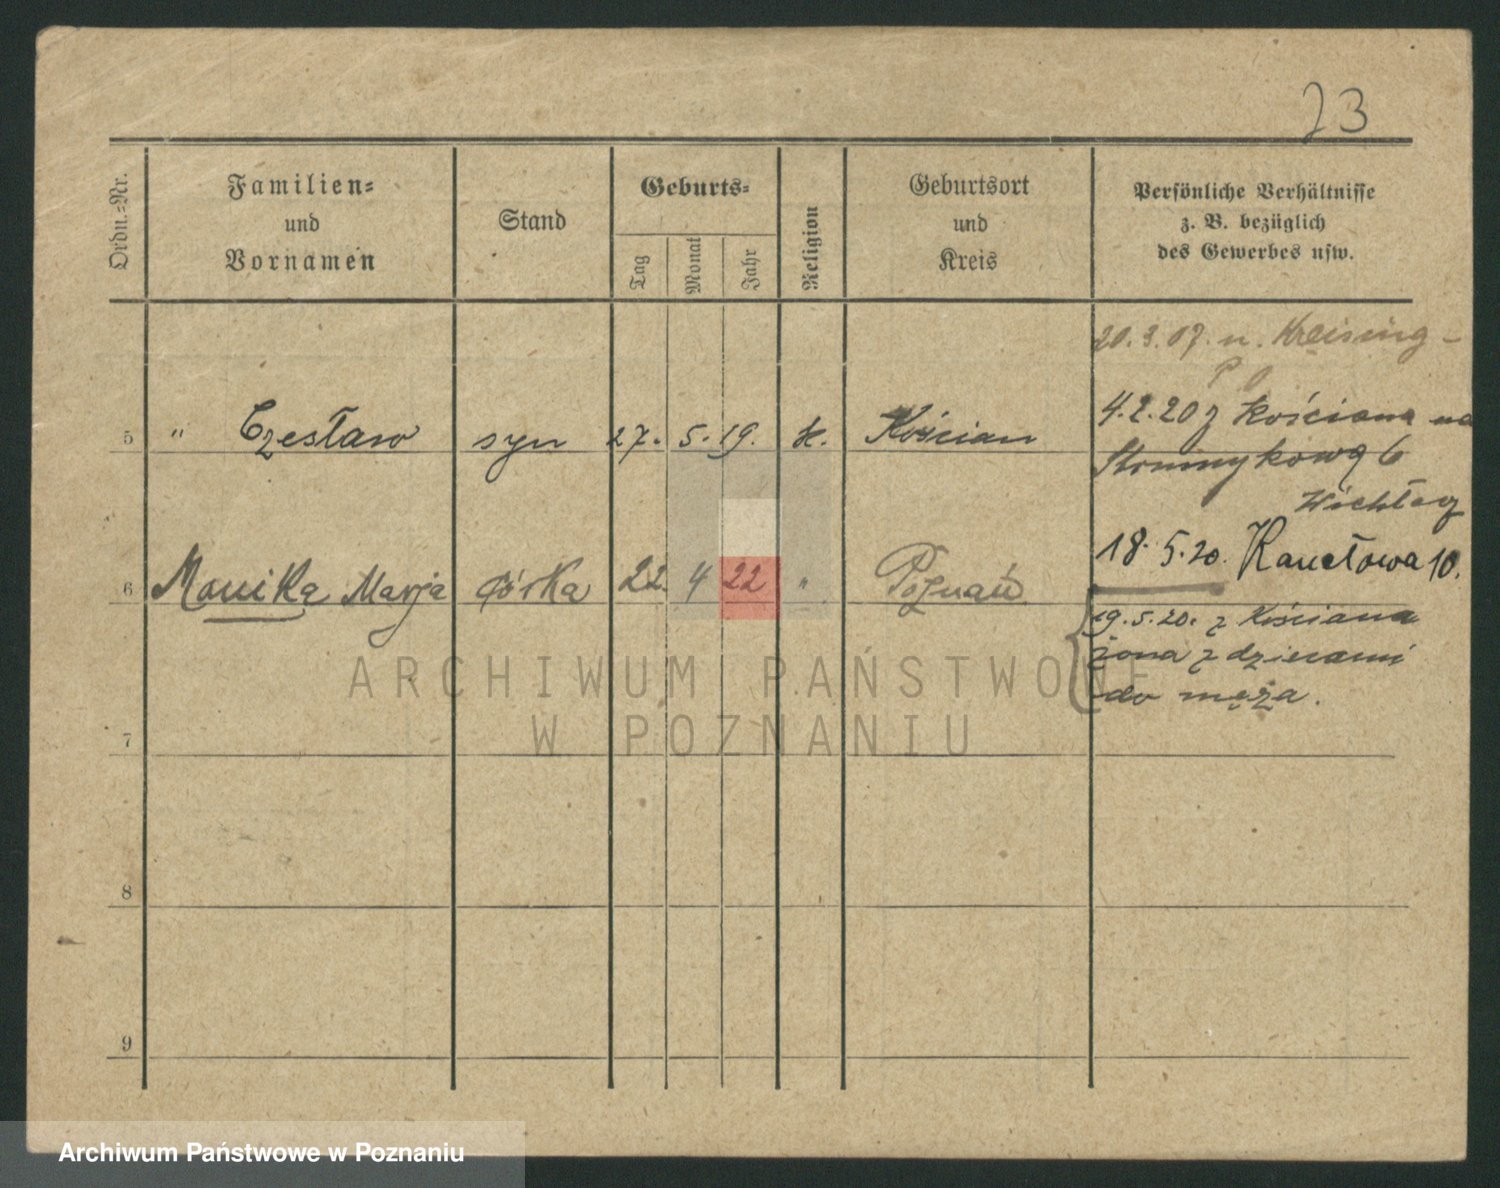 23
Ordn.-Nr.
Familien-
und
Vornamen
Stand
Geburts-
Tag
Monat
Jahr
Religion
Geburtsort
und
Kreis
Persönliche Verhältnisse
z. B. bezüglich
des Gewerbes usw.
20.3.07. n. Kreising -
5 " Czesław syn 27. 5. 19. k. Kościan
4.2.20 z Kościana na
6
18. 5. 20. 10.
6 Monika Marja córka 22. 4 22 " Poznań
19. 5. 20. z Kościana
żona z dziećmi
do męża.
7
8
9
ARCHIWUM PAŃSTWOWE
W POZNANIU
Archiwum Państwowe w Poznaniu